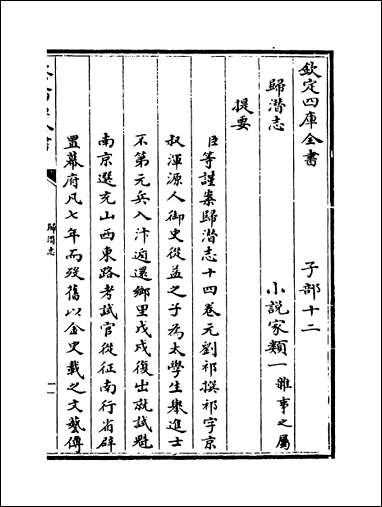 欽定四庫全書　子部十二
歸潛志　小說家類一雜事之屬
提要
臣等謹案歸潛志十四卷元劉祁撰祁字京
叔渾源人御史從益之子為太學生舉進士
不第元兵入汴遁還鄉里戊戌復出就試魁
南京選充山西東路考試官從征南行省辟
置幕府凡七年而殁舊以金史載之文藝傳
歸潛志